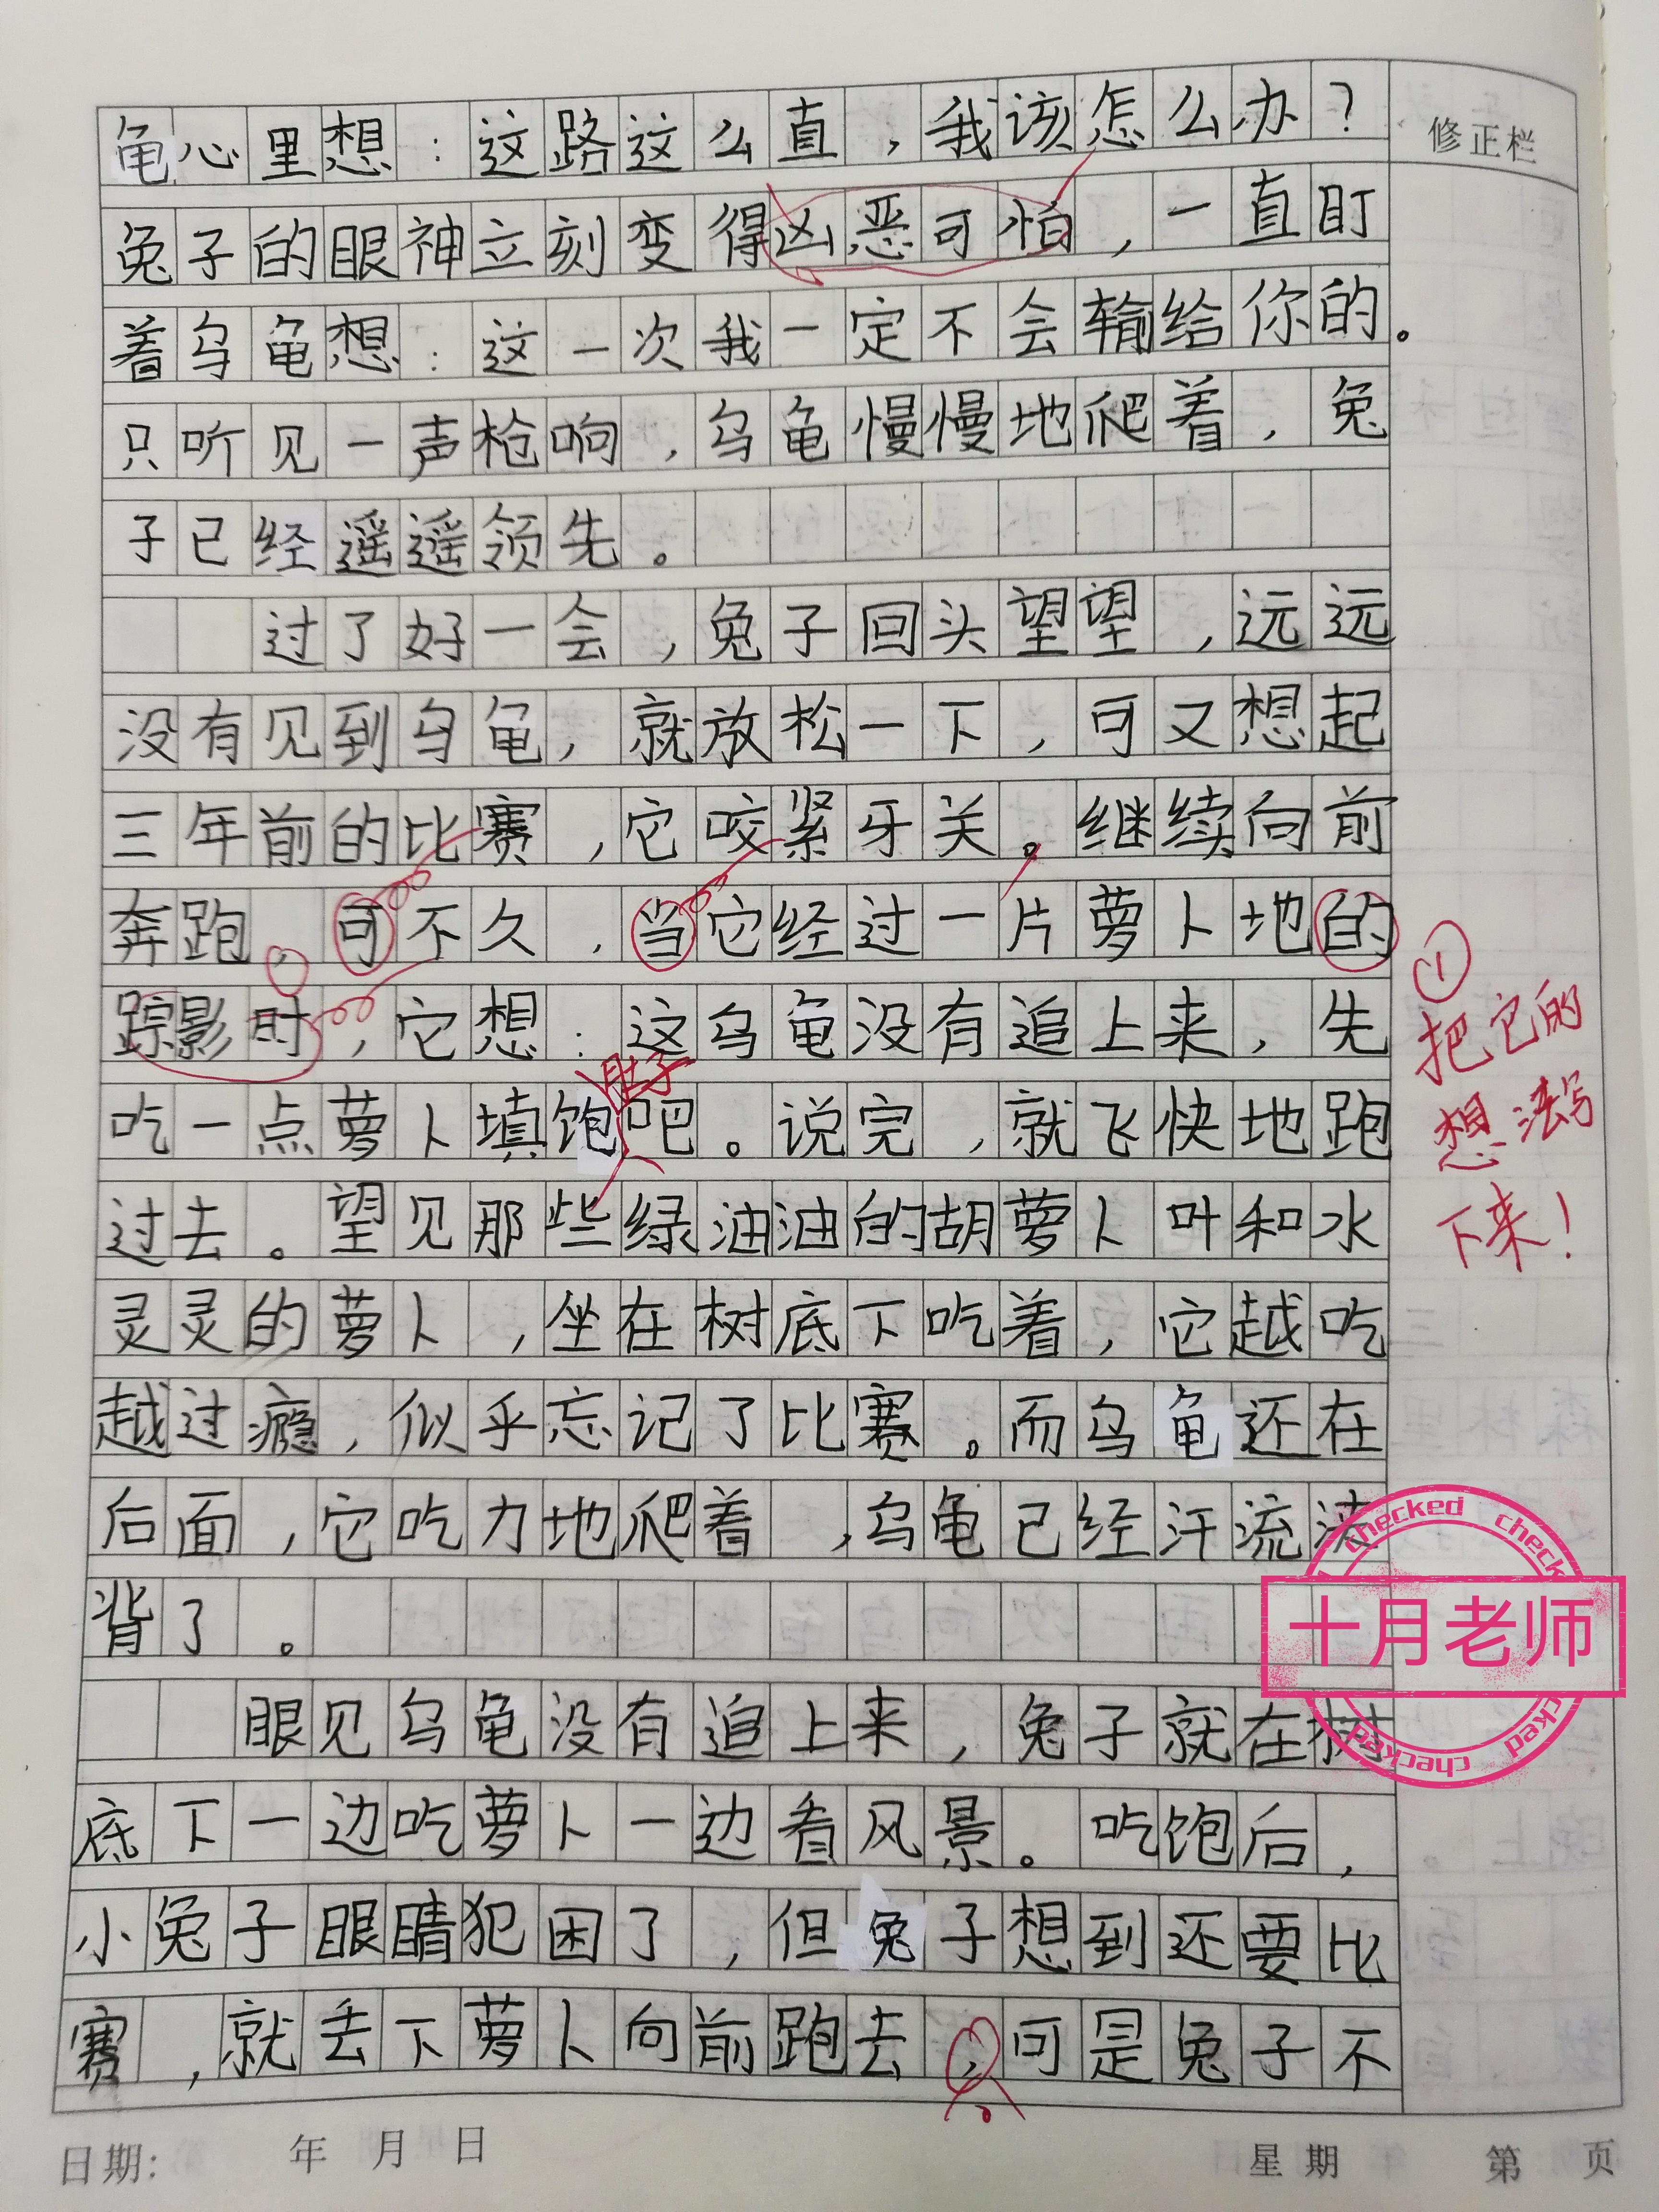 龟心里想:这路这么直,我该怎么办?
修正栏
兔子的眼神立刻变得凶恶可怕,一直盯
着乌龟想:这一次我一定不会输给你的。
只听见一声枪响,乌龟慢慢地爬着,兔
子已经遥遥领先。
过了好一会,兔子回头望望,远远
没有见到乌龟,就放松一下,可又想起
三年前的比赛,它咬紧牙关。继续向前
奔跑,可不久,当它经过一片萝卜地的
踪影时,它想:这乌龟没有追上来,先
肚子
吃一点萝卜填饱吧。说完,就飞快地跑
过去。望见那些绿油油的胡萝卜叶和水
灵灵的萝卜,坐在树底下吃着,它越吃
越过瘾,似乎忘记了比赛。而乌龟还在
后面,它吃力地爬着,乌龟已经汗流浃
背了。
眼见乌龟没有追上来,兔子就在树
底下一边吃萝卜一边看风景。吃饱后,
小兔子眼睛犯困了,但兔子想到还要比
赛,就丢下萝卜向前跑去,可是兔子不
①
把它的
想法写
下来!
checked checked
十月老师
checked checked
日期: 年 月 日
星期 第 页